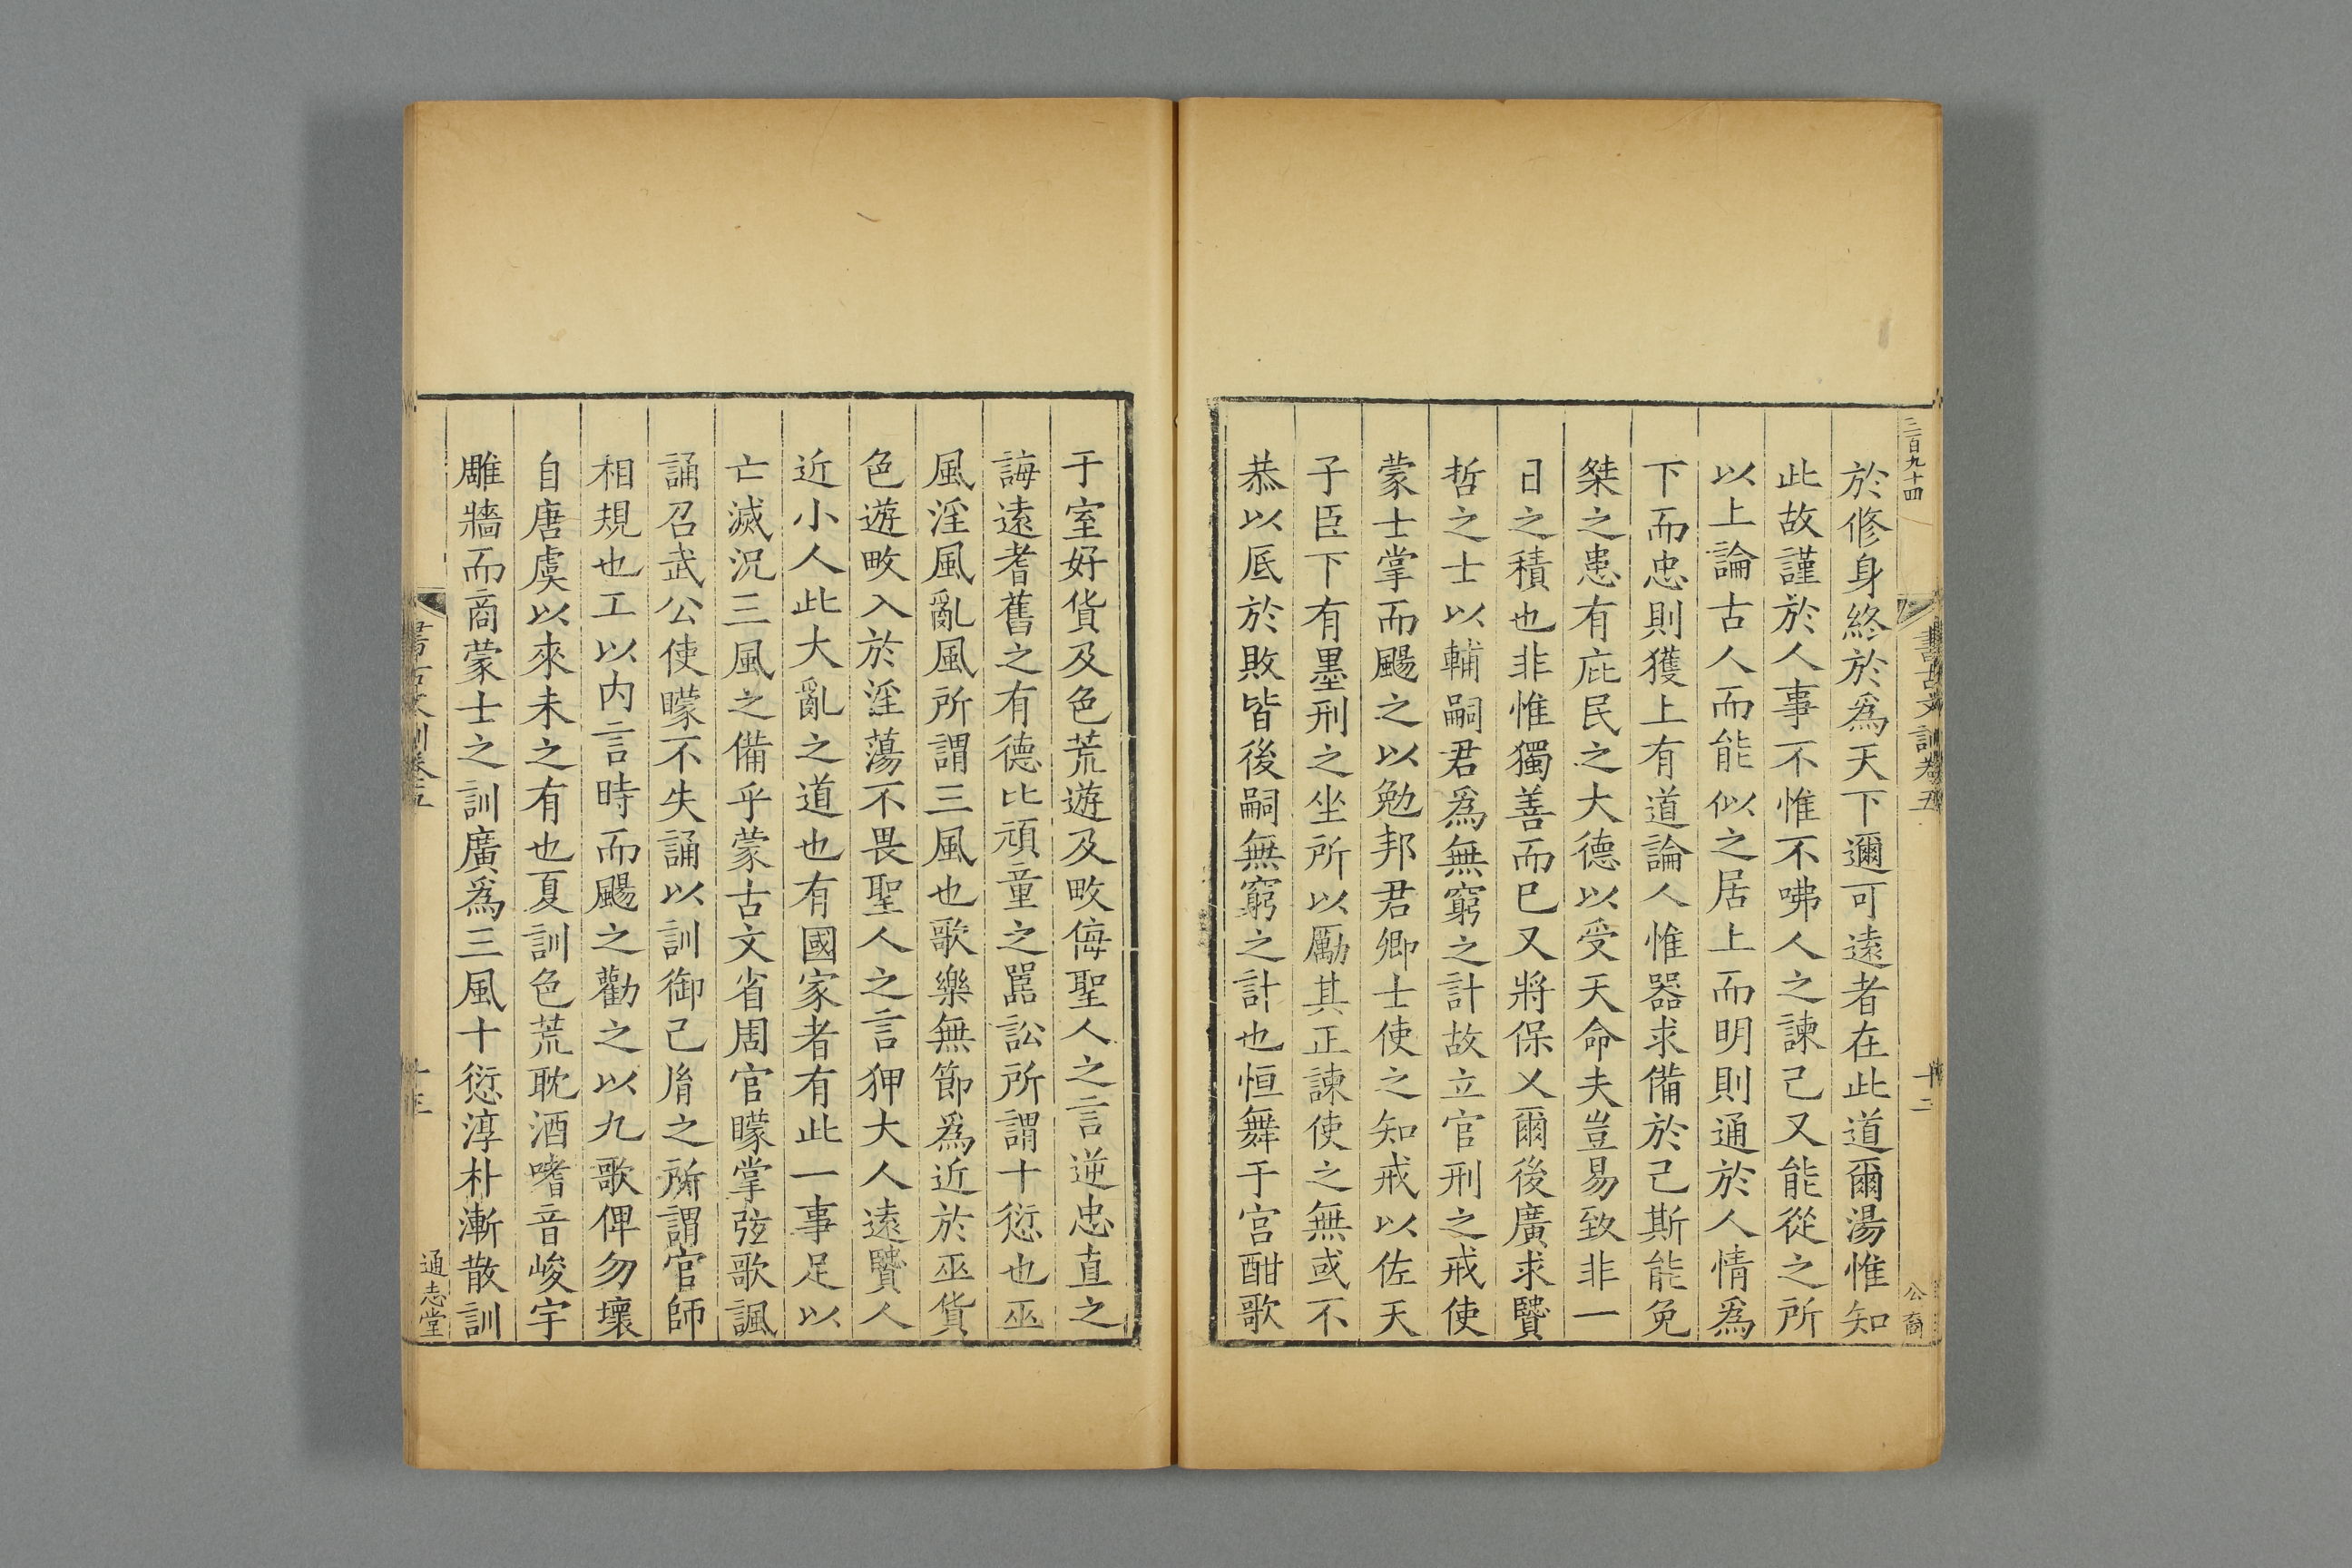 三百九十四
書古文訓卷五
十二
公裔
於修身終於爲天下邇可遠者在此道爾湯惟知
此故謹於人事不惟不咈人之諫己又能從之所
以上論古人而能似之居上而明則通於人情爲
下而忠則獲上有道論人惟器求備於己斯能免
桀之患有庇民之大德以受天命夫豈易致非一
日之積也非惟獨善而已又將保乂爾後廣求賢
哲之士以輔嗣君爲無窮之計故立官刑之戒使
蒙士掌而颺之以勉邦君卿士使之知戒以佐天
子臣下有墨刑之坐所以勵其正諫使之無或不
恭以底於敗皆後嗣無窮之計也恒舞于宫酣歌
于室好貨及色荒遊及畋侮聖人之言逆忠直之
誨遠耆舊之有德比頑童之嚚訟所謂十愆也巫
風淫風亂風所謂三風也歌樂無節爲近於巫貨
色遊畋入於淫蕩不畏聖人之言狎大人遠賢人
近小人此大亂之道也有國家者有此一事足以
亡滅況三風之備乎蒙古文省周官矇掌弦歌諷
誦召武公使矇不失誦以訓御己胤之所謂官師
相規也工以内言時而颺之勸之以九歌俾勿壞
自唐虞以來未之有也夏訓色荒耽酒嗜音峻宇
雕牆而商蒙士之訓廣爲三風十愆淳朴漸散訓
書古文訓卷五
十三
通志堂